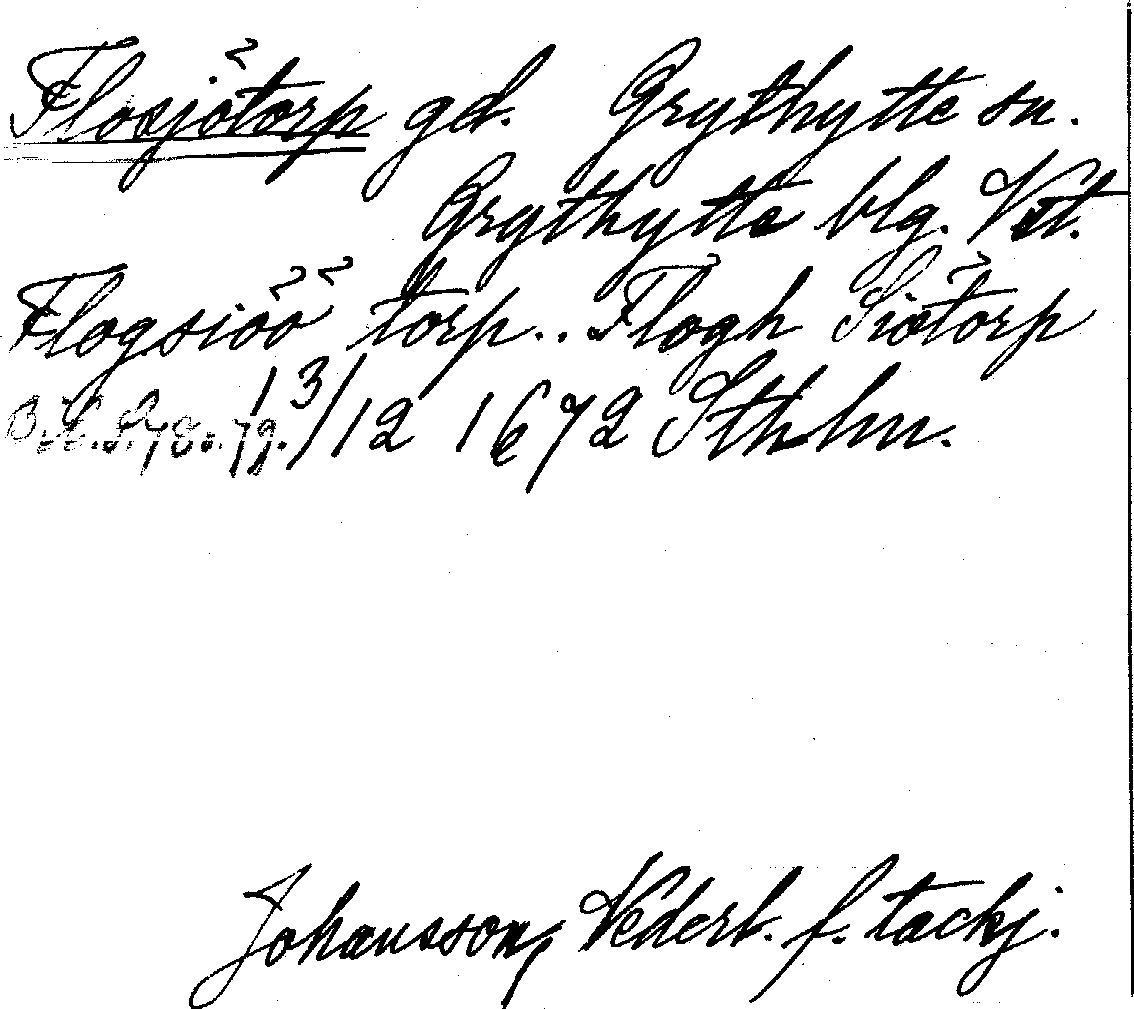 Flosjötorp gd. Grythytte sn.
Grythytte blg. Vstl.
Flogsiöö torp.. Flogh Siötorp
13/12 1672 Sthlm.
Johansson, Vederl. f. tackj.